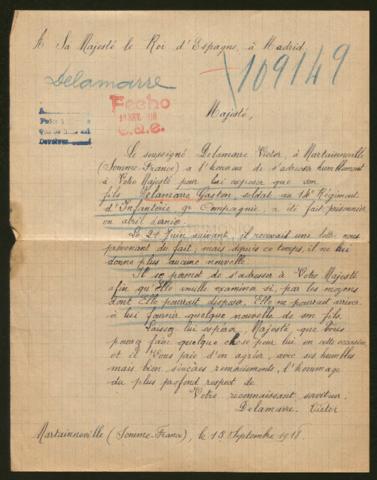 A Sa Majesté le Roi d'Espagne, à Madrid.
109149
Delamarre
Fecho
C. de.
Majesté,
Le soussigné Delamarre Victor, à Martainneville
(Somme-France) a l'honneur de s'adresser humblement
à Votre Majesté pour lui exposer que son
fils Delamarre Gaston, soldat au
d'Infanterie, 9e Compagnie, a été fait prisonnier
en avril dernier.
Le 21 Juin suivant, il recevait une lettre
provenant du fait; mais depuis ce temps, il ne lui
donne plus aucune nouvelle.
Il se permet de s'adresser à Votre Majesté
afin qu'Elle veuille examiner si, par les moyens
dont Elle pourrait disposer, Elle ne pourrait arriver
à lui fournir quelque nouvelle de son fils.
Laissez lui espérer Majesté que Vous
pourrez faire quelque chose pour lui en cette occasion
et il Vous prie d'en agréer, avec ses humbles
mais bien sincères remerciements, l'hommage
du plus profond respect de
Votre reconnaissant serviteur.
Delamarre Victor
Martainneville (Somme-France), le 15 Septembre 1918.